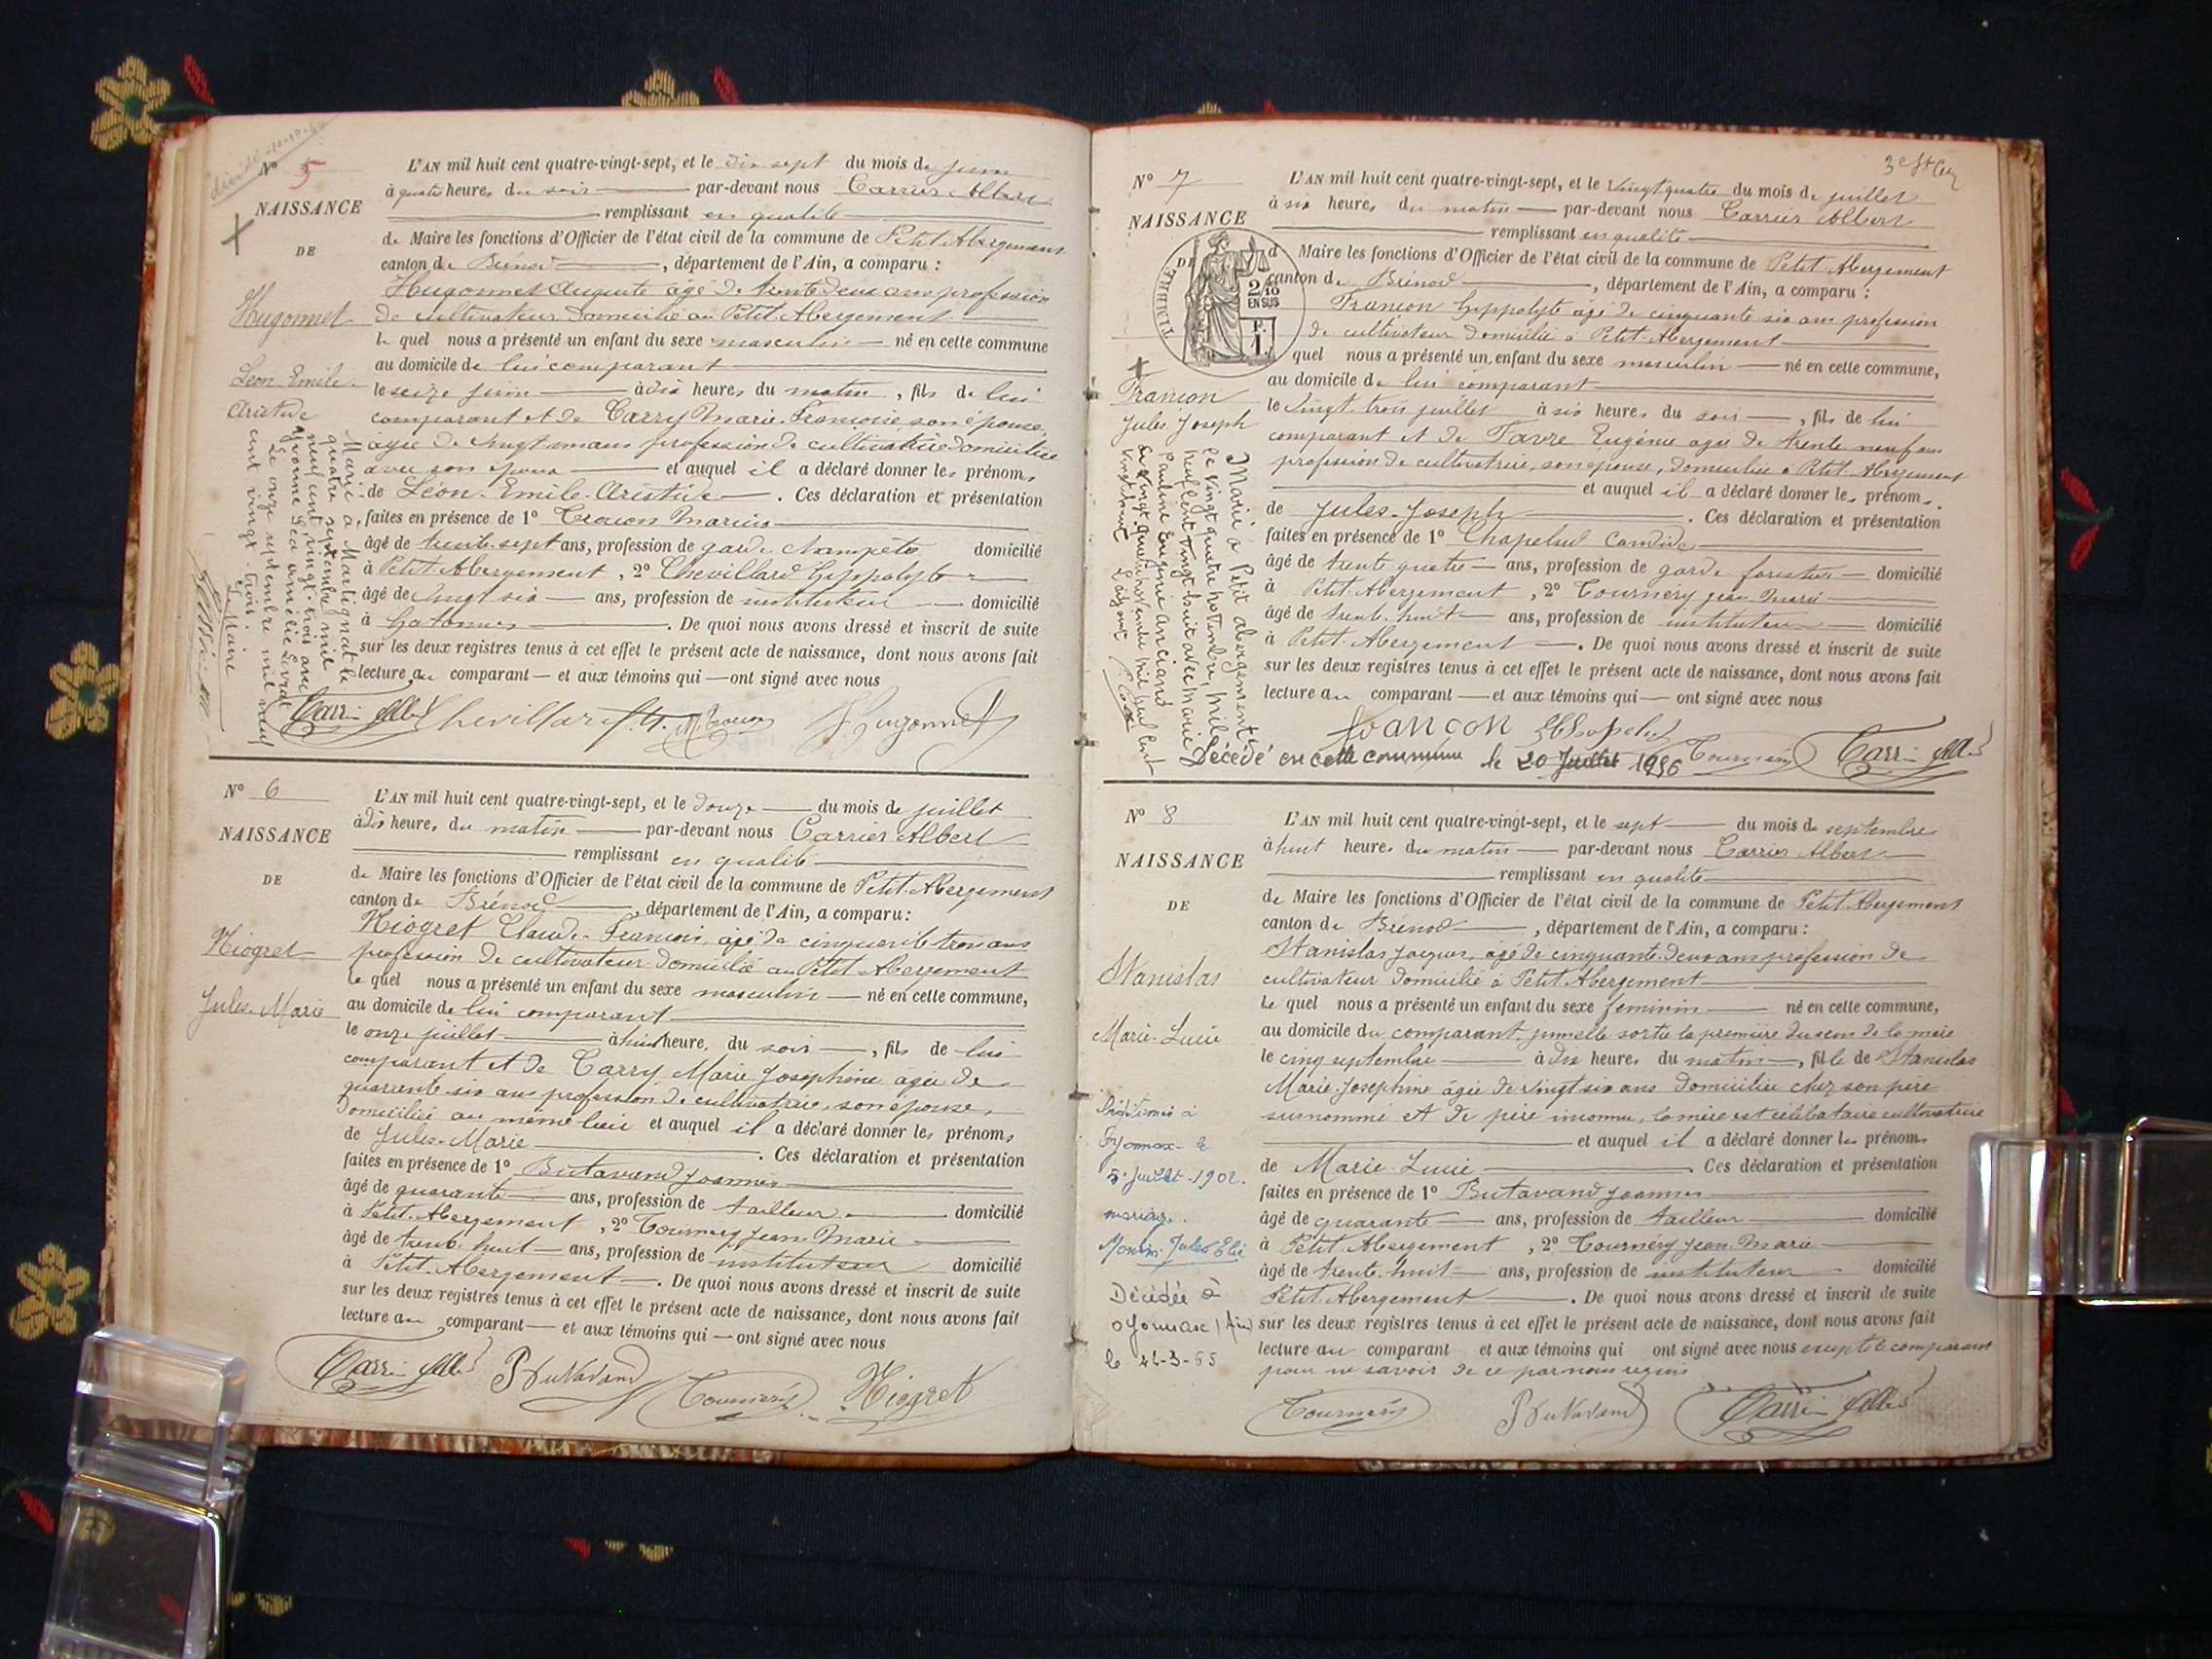 décédé
N° 5
NAISSANCE
DE
Hugonnet
Léon Emile
Aristide
L'AN mil huit cent quatre-vingt-sept, et le dix sept du mois de juin
à quatre heures du soir par-devant nous Carrier Albert
remplissant en qualité
de Maire les fonctions d'Officier de l'état civil de la commune de Petit Abergement
canton de Brénod, département de l'Ain, a comparu :
Hugonnet Auguste âgé de trente deux ans profession
de cultivateur domicilié au Petit Abergement
le quel nous a présenté un enfant du sexe masculin né en cette commune
au domicile de lui comparant
le seize juin à dix heures du matin, fils de lui
comparant et de Carry Marie Françoise son épouse
âgée de vingt un ans profession de cultivatrice domiciliée
avec son époux et auquel il a déclaré donner les prénoms
de Léon-Emile-Aristide. Ces déclaration et présentation
faites en présence de 1° Crouon Marius
âgé de trente-sept ans, profession de garde champêtre domicilié
à Petit Abergement, 2° Chevillard Hyppolyte
âgé de vingt six ans, profession de instituteur domicilié
à Hotonnes. De quoi nous avons dressé et inscrit de suite
sur les deux registres tenus à cet effet le présent acte de naissance, dont nous avons fait
lecture au comparant et aux témoins qui ont signé avec nous
Marié à Martignat le
quatre septembre mil
neuf cent vingt-trois avec
Yvonne Léa Amélie
Le onze septembre mil neuf
cent vingt-trois.
Le Maire
Carrier Albert Chevillard H. M. Crouon A. Hugonnet
N° 6
NAISSANCE
DE
Niogret
Jules-Marie
L'AN mil huit cent quatre-vingt-sept, et le douze du mois de juillet
à dix heures du matin par-devant nous Carrier Albert
remplissant en qualité
de Maire les fonctions d'Officier de l'état civil de la commune de Petit Abergement
canton de Brénod, département de l'Ain, a comparu :
Niogret Claude-François, âgé de cinquante trois ans
profession de cultivateur domicilié au Petit Abergement
le quel nous a présenté un enfant du sexe masculin né en cette commune,
au domicile de lui comparant
le onze juillet à huit heures du soir, fils de lui
comparant et de Carry Marie Josephine agée de
quarante-six ans profession de cultivatrice, son épouse,
domiciliée au même lieu et auquel il a déclaré donner les prénoms
de Jules-Marie. Ces déclaration et présentation
faites en présence de 1° Butavand Joannes
âgé de quarante ans, profession de tailleur domicilié
à Petit-Abergement, 2° Tournery Jean Marie
âgé de trente huit ans, profession de instituteur domicilié
à Petit-Abergement. De quoi nous avons dressé et inscrit de suite
sur les deux registres tenus à cet effet le présent acte de naissance, dont nous avons fait
lecture au comparant et aux témoins qui ont signé avec nous
Carrier Albert Butavand Tournery Niogret
N° 7
NAISSANCE
DE
TIMBRE
2/10
EN SUS
P.
1.
Francon
Jules Joseph
L'AN mil huit cent quatre-vingt-sept, et le vingt quatre du mois de juillet
à six heures du matin par-devant nous Carrier Albert
remplissant en qualité
d Maire les fonctions d'Officier de l'état civil de la commune de Petit Abergement
canton de Brénod, département de l'Ain, a comparu :
Francon Hyppolyte âgé de cinquante six ans profession
de cultivateur domicilié à Petit-Abergement
quel nous a présenté un enfant du sexe masculin né en cette commune,
au domicile de lui comparant
le vingt-trois juillet à six heures du soir, fils de lui
comparant et de Favre Eugénie agée de trente neuf ans
profession de cultivatrice, son épouse, domiciliée à Petit-Abergement
et auquel il a déclaré donner les prénoms
de Jules-Joseph. Ces déclaration et présentation
faites en présence de 1° Chapelud Candide
âgé de trente quatre ans, profession de garde forestier domicilié
à Petit Abergement, 2° Tournery Jean Marie
âgé de trente-huit ans, profession de instituteur domicilié
à Petit-Abergement. De quoi nous avons dressé et inscrit de suite
sur les deux registres tenus à cet effet le présent acte de naissance, dont nous avons fait
lecture au comparant et aux témoins qui ont signé avec nous
Marié à Petit abergement
le vingt quatre novembre, mil
neuf cent vingt-huit avec Marie
Pauline Eugénie Anciand
Le vingt quatre novembre mil neuf cent
vingt huit L'adjoint
Francon Chapelud Tournery Carrier Albert
Décédé en cette commune le 20 Juillet 1956
N° 8
NAISSANCE
DE
Stanislas
Marie-Lucie
L'AN mil huit cent quatre-vingt-sept, et le sept du mois de septembre
à huit heures du matin par-devant nous Carrier Albert
remplissant en qualité
de Maire les fonctions d'Officier de l'état civil de la commune de Petit Abergement
canton de Brénod, département de l'Ain, a comparu :
Stanislas Jacques, âgé de cinquante-deux ans profession de
cultivateur domicilié à Petit Abergement
le quel nous a présenté un enfant du sexe féminin né en cette commune,
au domicile du comparant, jumelle sortie la première du sein de la mère
le cinq septembre à dix heures du matin, fille de Stanislas
Marie-Josephine âgée de vingt six ans domiciliée chez son père
susnommé et de père inconnu, la mère est célibataire cultivatrice
et auquel il a déclaré donner les prénoms
de Marie-Lucie. Ces déclaration et présentation
faites en présence de 1° Butavand Joannes
âgé de quarante ans, profession de tailleur domicilié
à Petit-Abergement, 2° Tournéry Jean-Marie
âgé de trente-huit ans, profession de instituteur domicilié
Petit-Abergement. De quoi nous avons dressé et inscrit de suite
sur les deux registres tenus à cet effet le présent acte de naissance, dont nous avons fait
lecture au comparant et aux témoins qui ont signé avec nous excepté le comparant
pour ne savoir de ce par nous requis
Légitimée à
Oyonnax le
5 juillet 1902.
mariage.
Monin Jules Elie
Décédée à
Oyonnax (Ain)
le
Tournery Butavand Carrier Albert